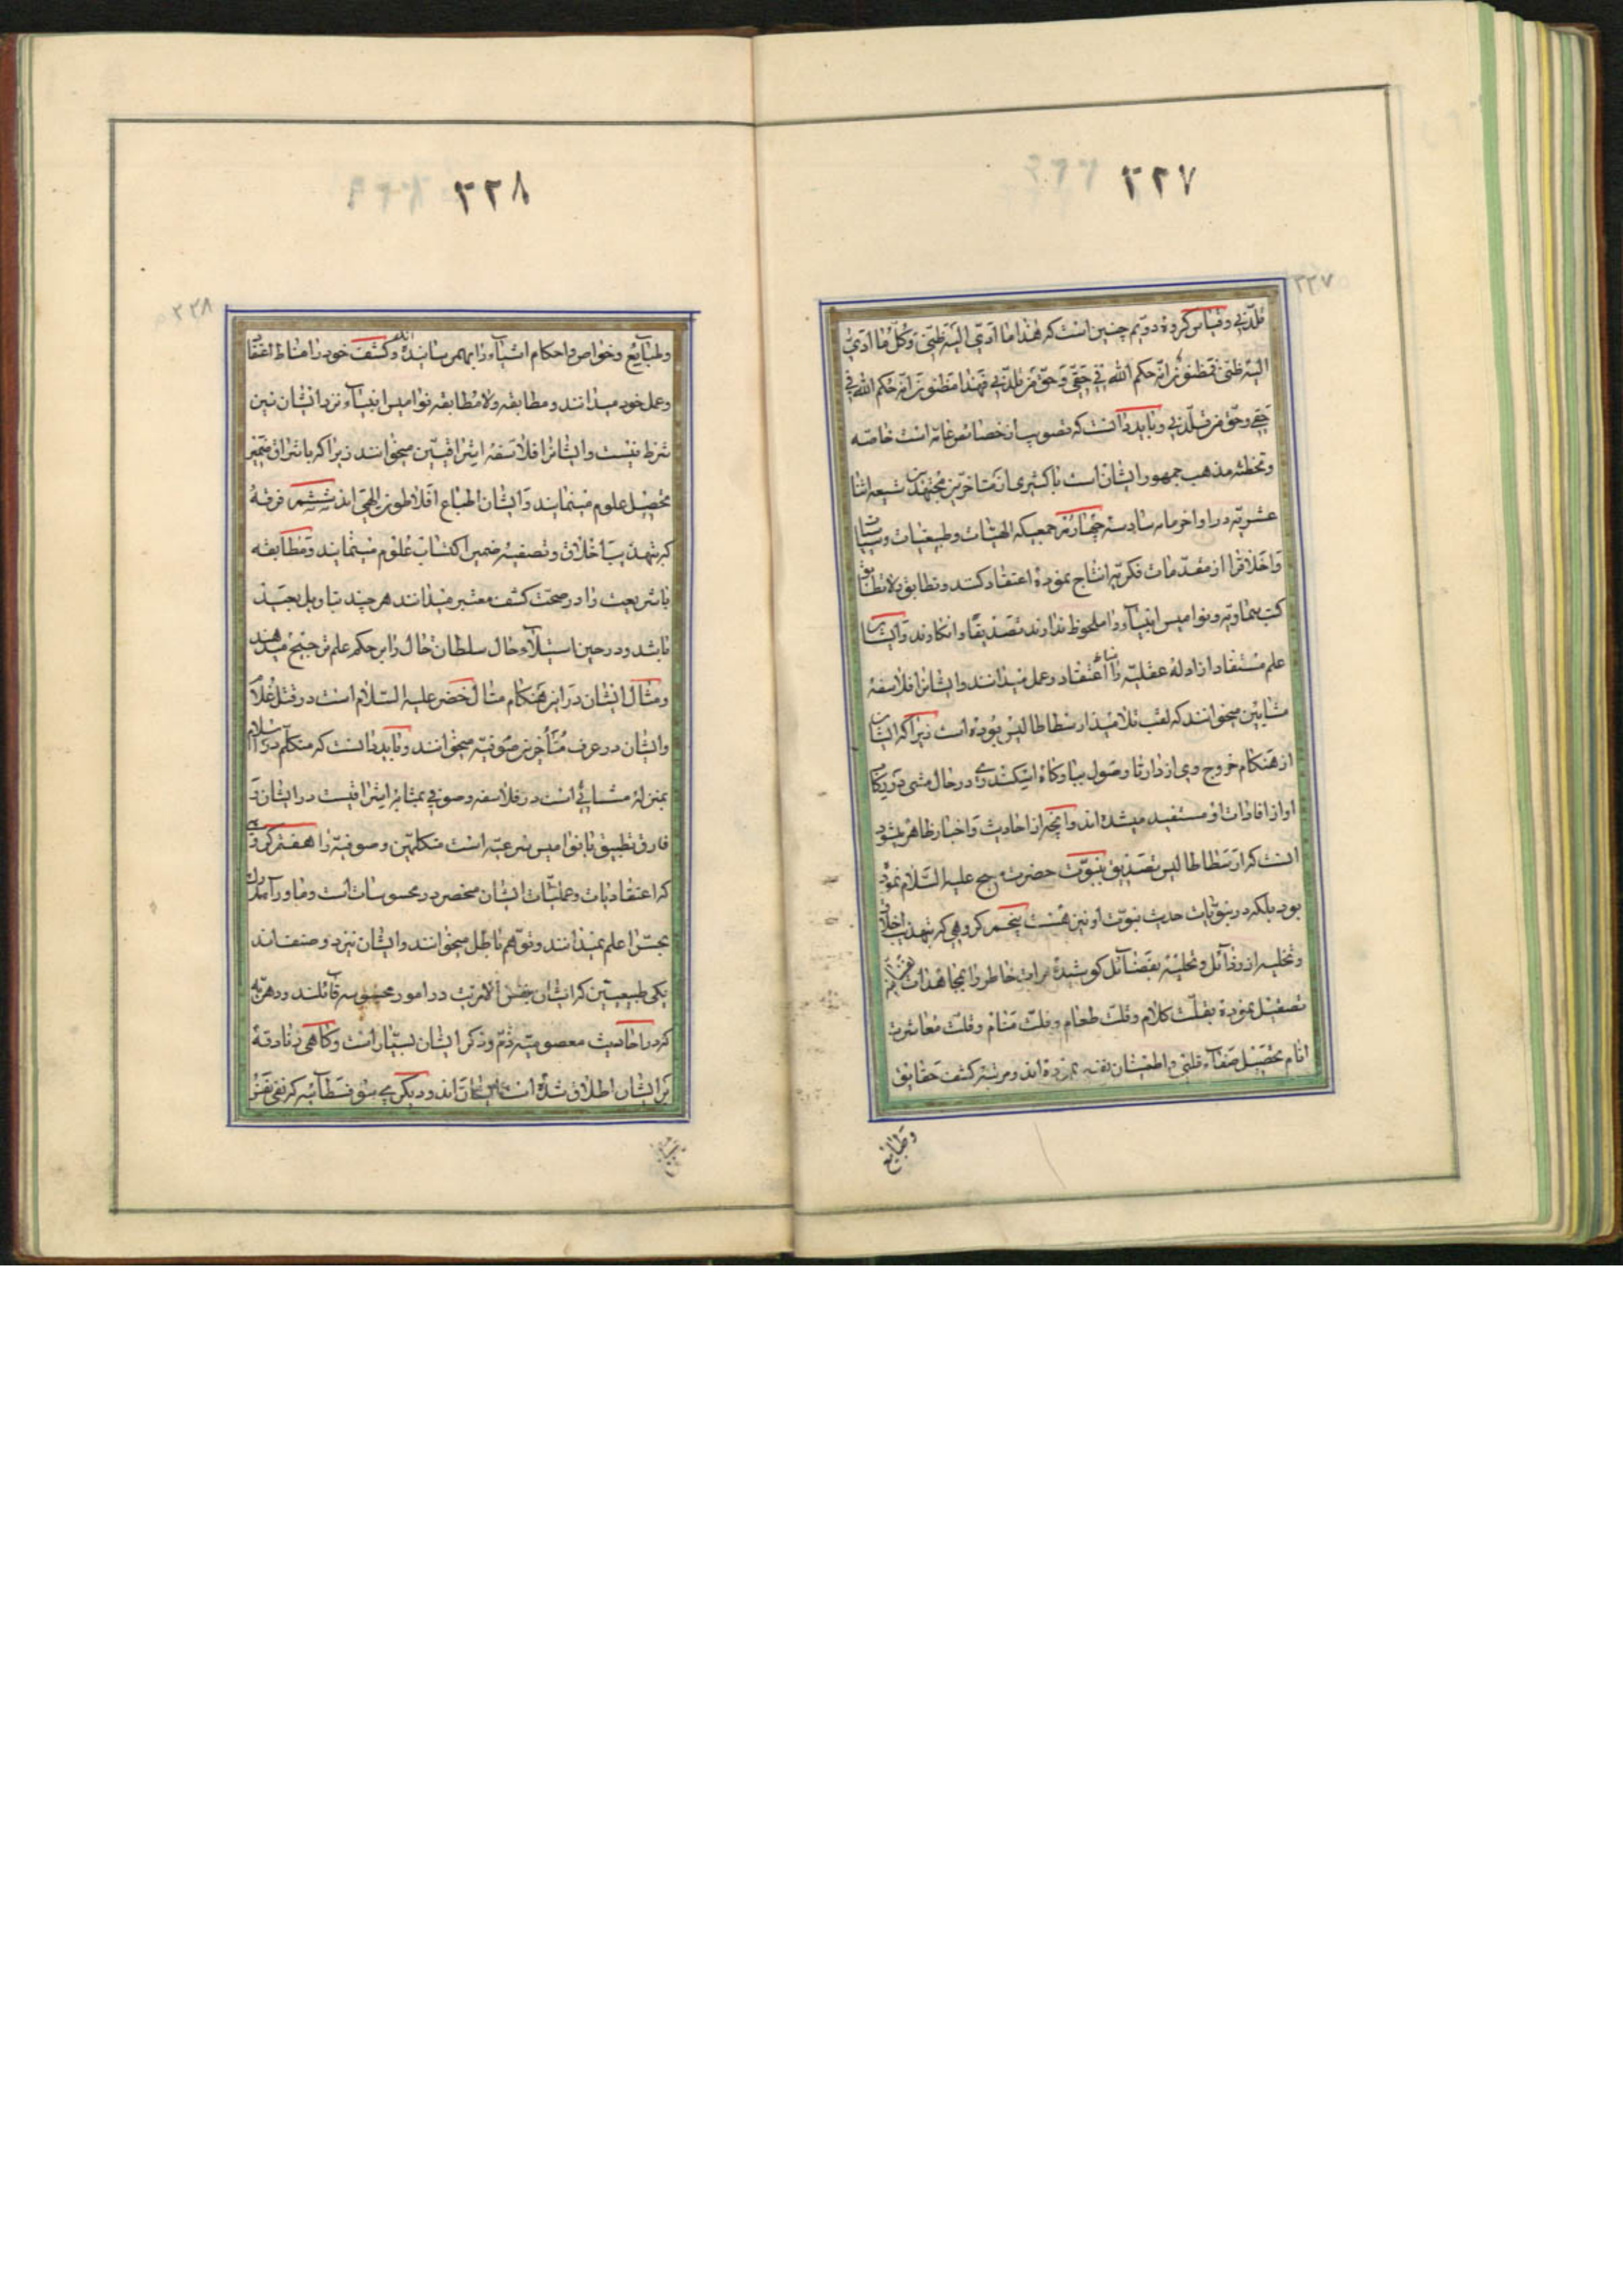 ۳۲۷
۳۲۷
قلّدنی و قیاس گروه دویم چنین است که هذا ما ادّی الیه ظنّی و کل ما ادّی
الیه ظنّی فمظنون انه حکم الله فی حقی و حق من قلّدنی فهذا مظنون انه حکم الله فی
حقی و حق من قلّدنی و باید دانست که تصویب از خصائص عامه است خاصه
و تخطئه مذهب جمهور ایشان است با کثیری از متأخرین مجتهدین شیعه اثنا
عشریه در اواخر مائه سادسه چهارم جمعیکه الهیات و طبیعیات و سیاسات
و اخلاق را از مقدمات فکریه انتاج نموده اعتقاد کنند و تطابق و لا تطابق
کتب سماویه و نوامیس انبیاء را ملحوظ ندارند تصدیقا و انکارا و ایشان
علم مستفاد از ادله عقلیه را مناط اعتقاد و عمل میدانند و ایشانرا فلاسفه
مشایین میخوانند که لقب تلامیذ ارسطاطالیس بوده است زیرا که ایشان
از هنگام خروج وی از دار تا وصول ببارگاه اسکندری در حال مشی در رکاب
او از افادات او مستفید میشده اند و آنچه از احادیث و اخبار ظاهر میشود
آنست که ارسطاطالیس تصدیق بنبوت حضرت علیه السلام نموده
بود بلکه در نبویات حدیث نبوت او نیز هست پنجم گروهی که بتهذیب اخلاق
و تخلیه از رذائل و تحلیه بفضائل کوشیده مرآت خاطر را بمجاهدات
تصقیل نموده بقلت کلام و قلت طعام و قلت منام و قلت معاشرت
انام تحصیل صفاء قلبی و اطمینان نفسی نموده اند و مرتبه کشف حقایق
و طبایع
۳۲۸
۳۲۸
و طبایع و خواص و احکام اشیاء را بهم رسانیده اند و کشف خود را مناط اعتقاد
و عمل خود میدانند و مطابقه و لا مطابقه نوامیس انبیاء نزد ایشان نیز
شرط نیست و ایشانرا فلاسفه اشراقیین میخوانند زیرا که باشراق ضمیر
تحصیل علوم مینمایند و ایشان اتباع افلاطون الهی اند ششم فرقه
که بتهذیب اخلاق و تصفیه ضمیر اکتساب علوم مینمایند و مطابقه
با شریعت را در صحت کشف معتبر میدانند هر چند بتاویل بعید
باشد و در حین استیلاء حال سلطان حال را بر حکم علم ترجیح میدهند
و مثال ایشان در این هنگام مثال خضر علیه السلام است در قتل غلام
و ایشان در عرف متأخرین صوفیه میخوانند و باید دانست که متکلم در اسلام
بمنزله مشائی است در فلاسفه و صوفی بمثابه اشراقیست در ایشان و
فارق تطبیق با نوامیس شرعیه است متکلمین و صوفیه را هفتم گروهی
که اعتقادیات و عملیات ایشان منحصر در محسوسات است و ماوراء مدرک
بحس را علم نمیدانند و توهم باطل میخوانند و ایشان نیز دو صنف اند
یکی طبیعیین که ایشان بنفس الامریت در امور محسوسه قائلند و دهریه
که در احادیث معصومیه ذم و ذکر ایشان بسیار است و گاهی زنادقه
بر ایشان اطلاق شده است ایشان اند و دیگری سوفسطائیه که نفی نفس